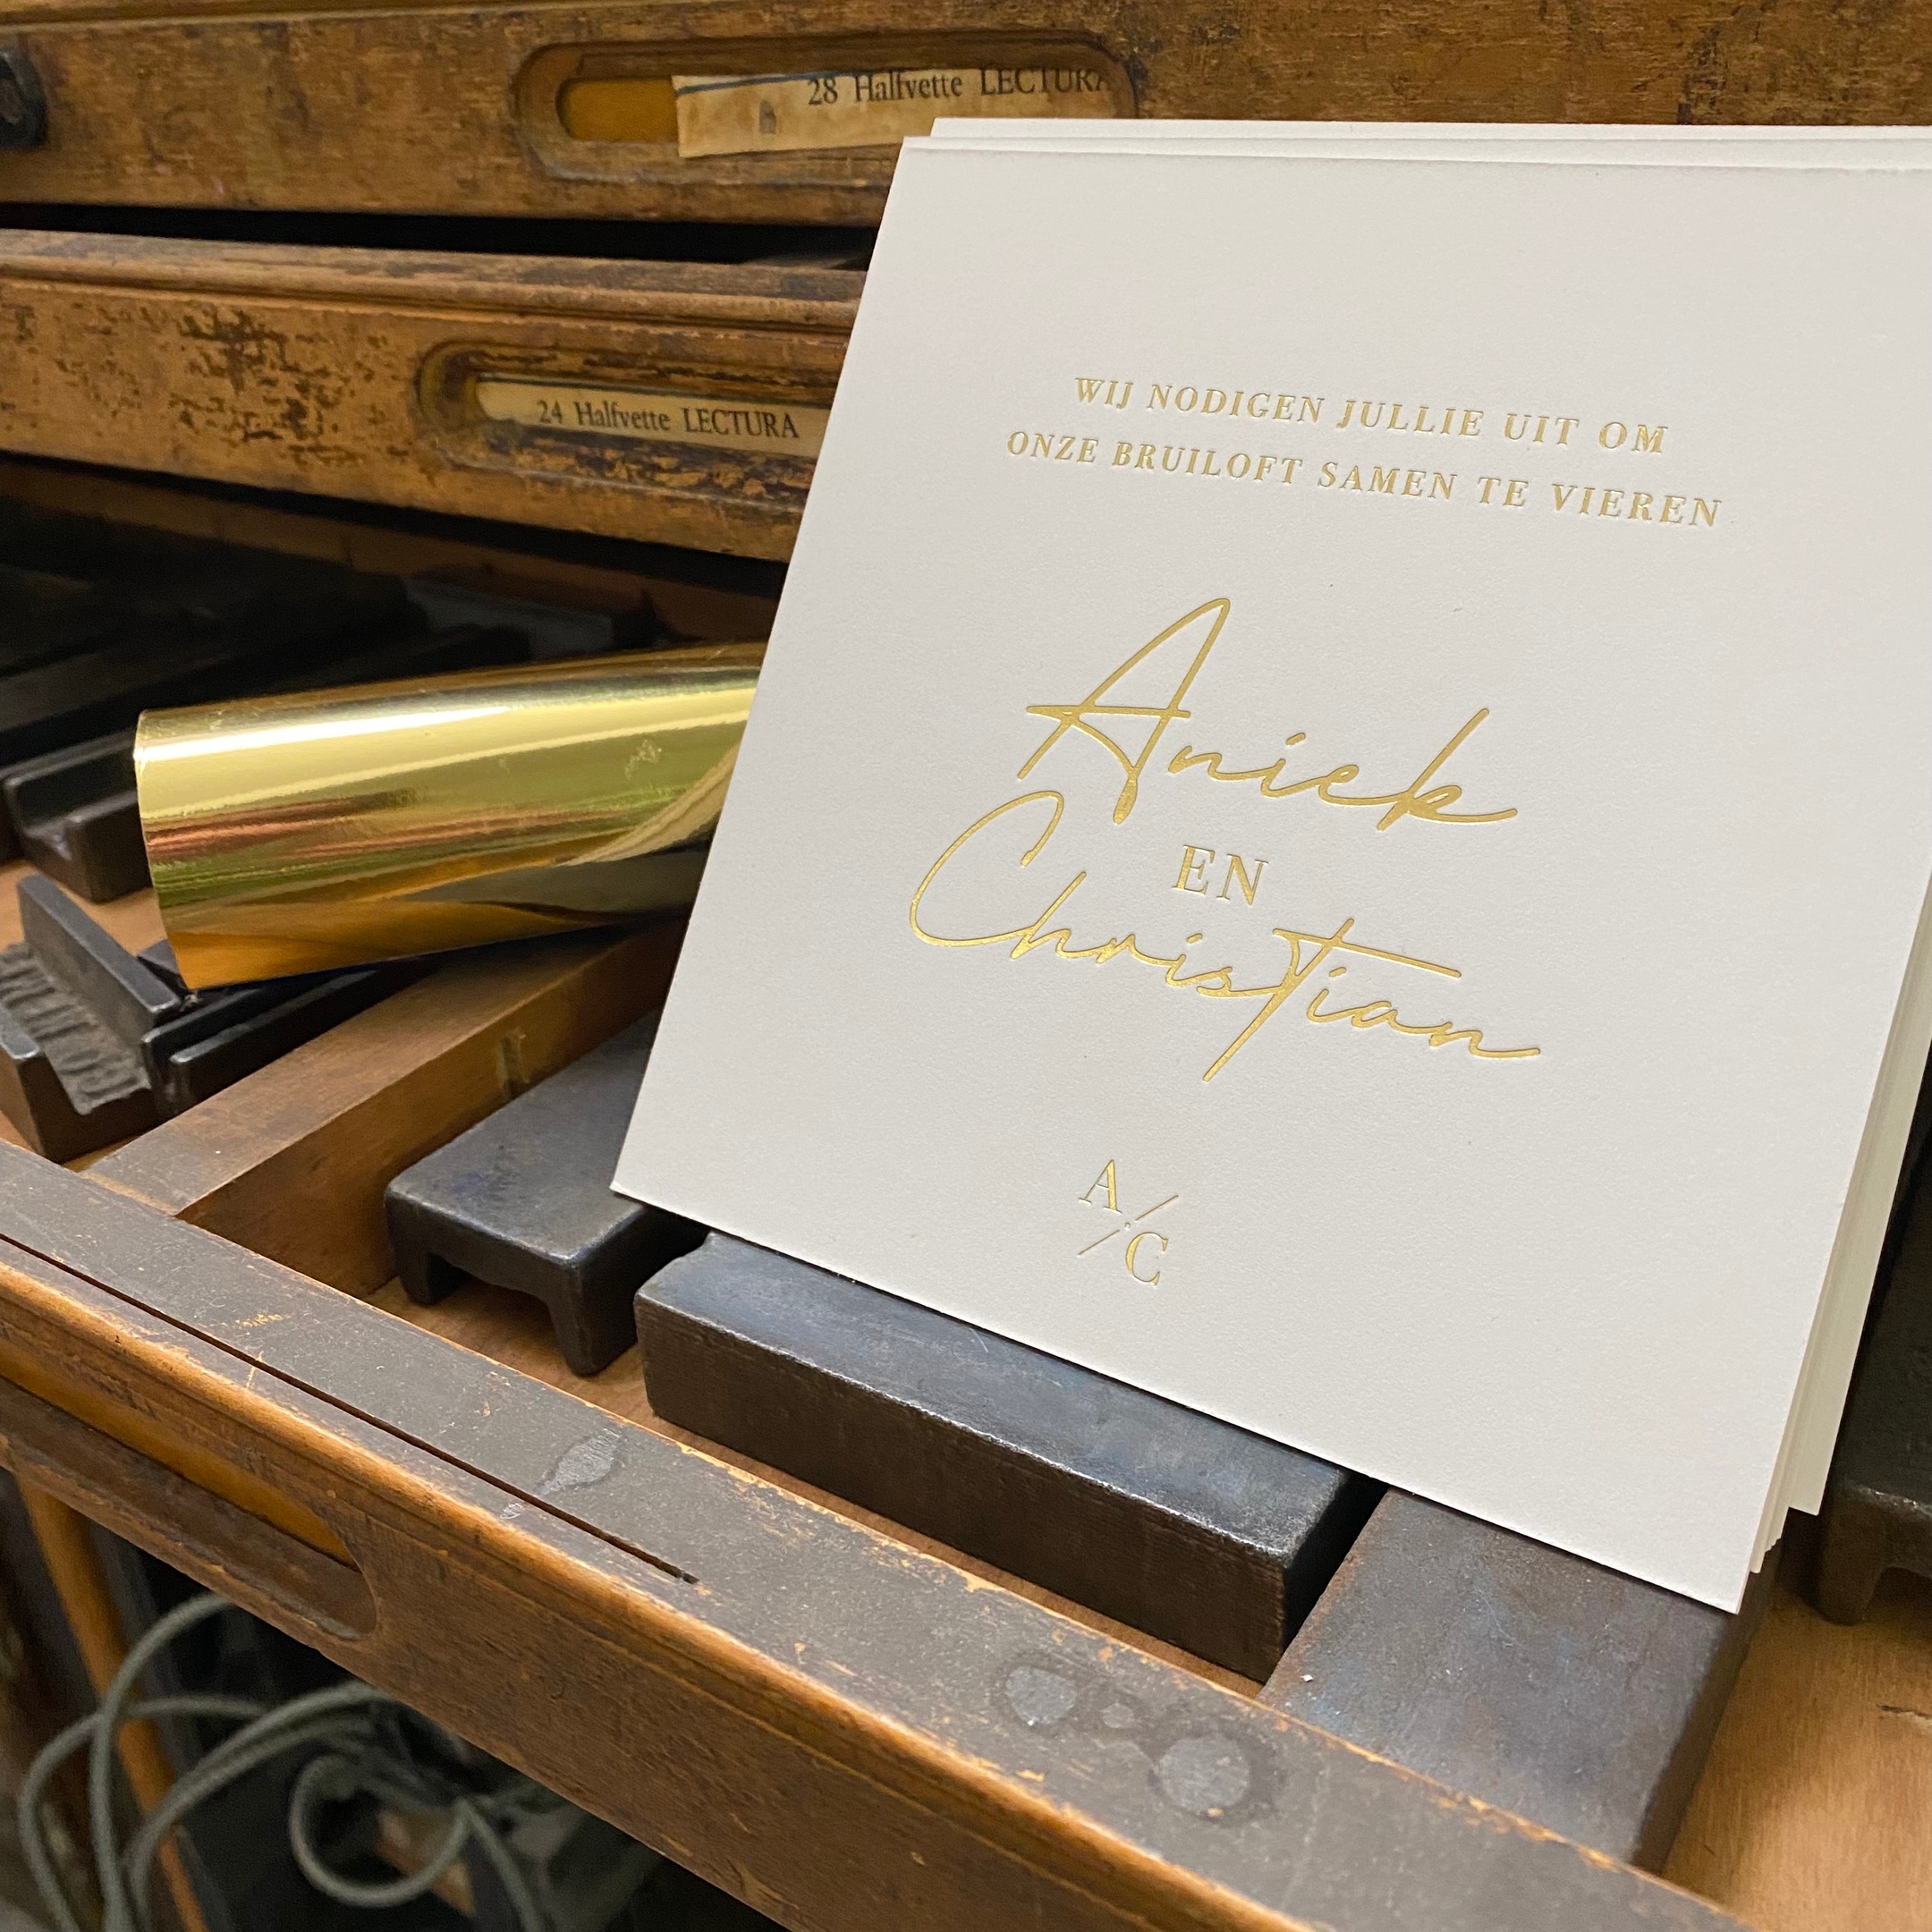 28 Halfvette LECTURA
24 Halfvette LECTURA
WIJ NODIGEN JULLIE UIT OM
ONZE BRUILOFT SAMEN TE VIEREN
Aniek
EN
Christian
A
C